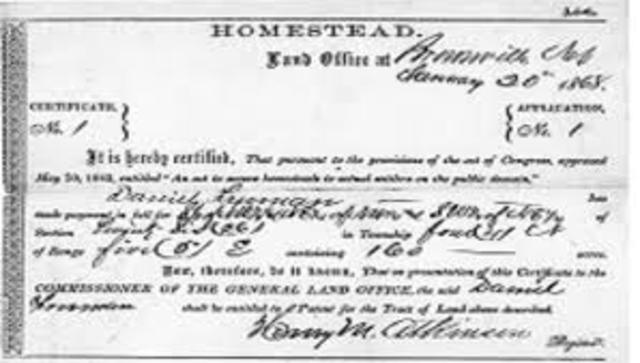 HOMESTEAD.
Land Office at Brownville Neb
January 20th 1868.
CERTIFICATE, APPLICATION,
No. 1 No. 1
It is hereby certified, That pursuant to the provisions of the act of Congress, approved
May 20, 1862, entitled "An act to secure homesteads to actual settlers on the public domain,"
Daniel has
made payment in full for of of
Section Twenty Six (26) in Township four (4) N
of Range five (5) E containing 160 acres.
Now, therefore, be it known, That on presentation of this Certificate to the
COMMISSIONER OF THE GENERAL LAND OFFICE, the said Daniel
shall be entitled to a Patent for the Tract of Land above described.
Henry M. Atkinson
Register.